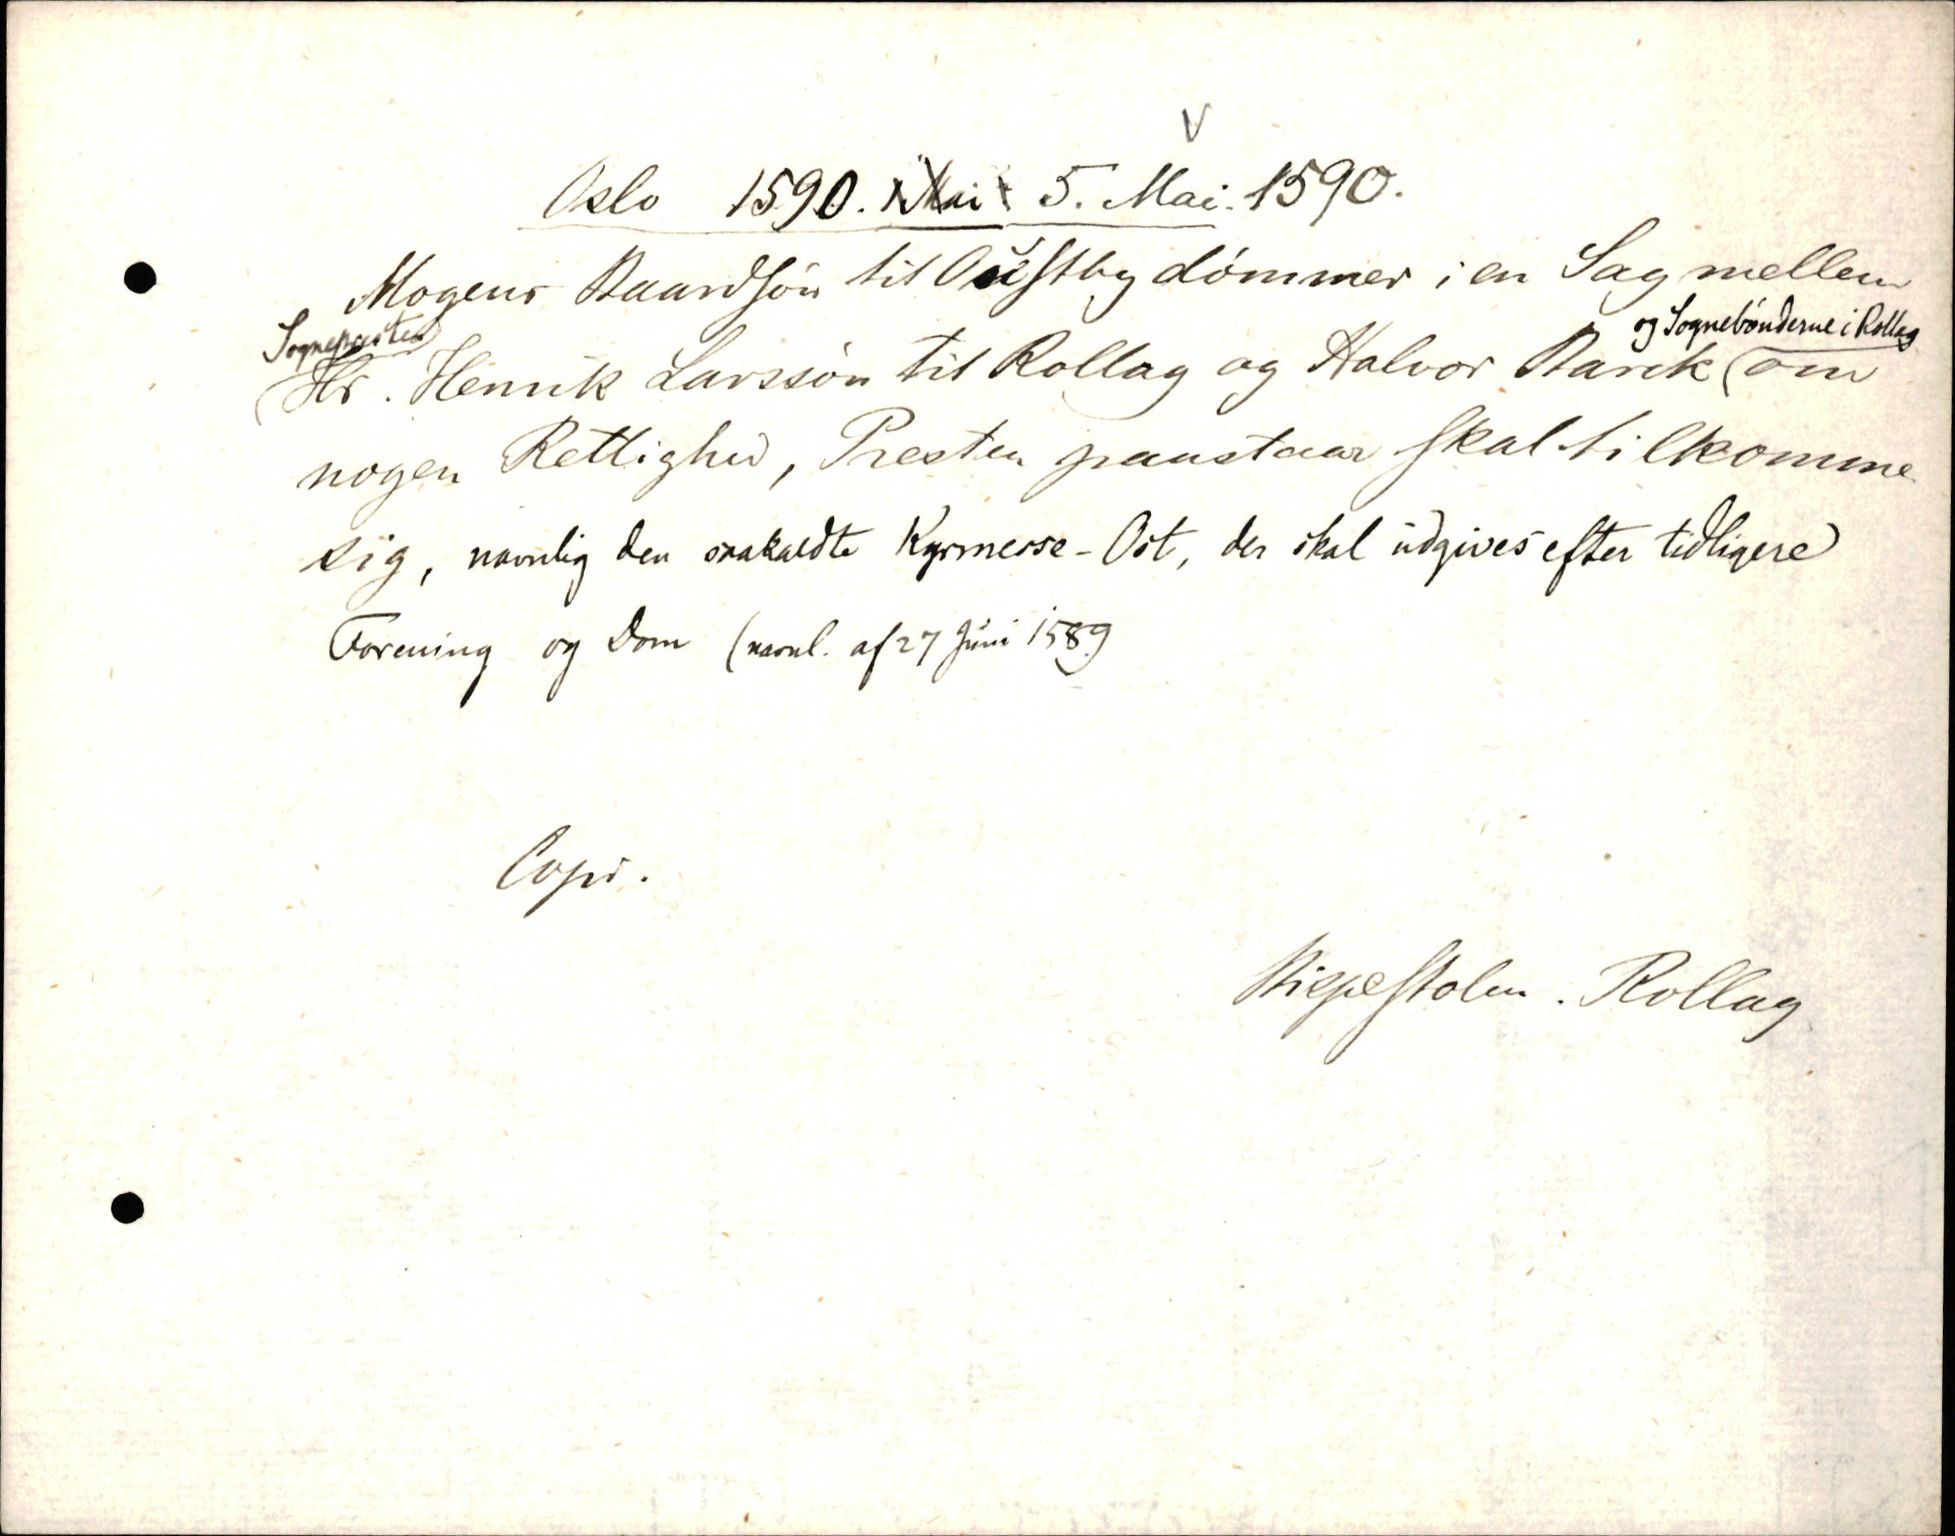 V
Oslo 1590. Mai 5. Mai. 1590.
Mogens Baardsøn til Oustby dømmer i en Sag mellem
Sognepresten og Sognebønderne i Rollag
Hr. Henrik Larssøn til Rollag og Halvor Barck (om
nogen Rettighed, Presten paastaar skal tilkomme
sig, navnlig den saakaldte Kyrmesse-Ost, der skal udgives efter tidligere
Forening og Dom (navnl. af 27 Juni 1589
Copi.
Bispestolen. Rollag